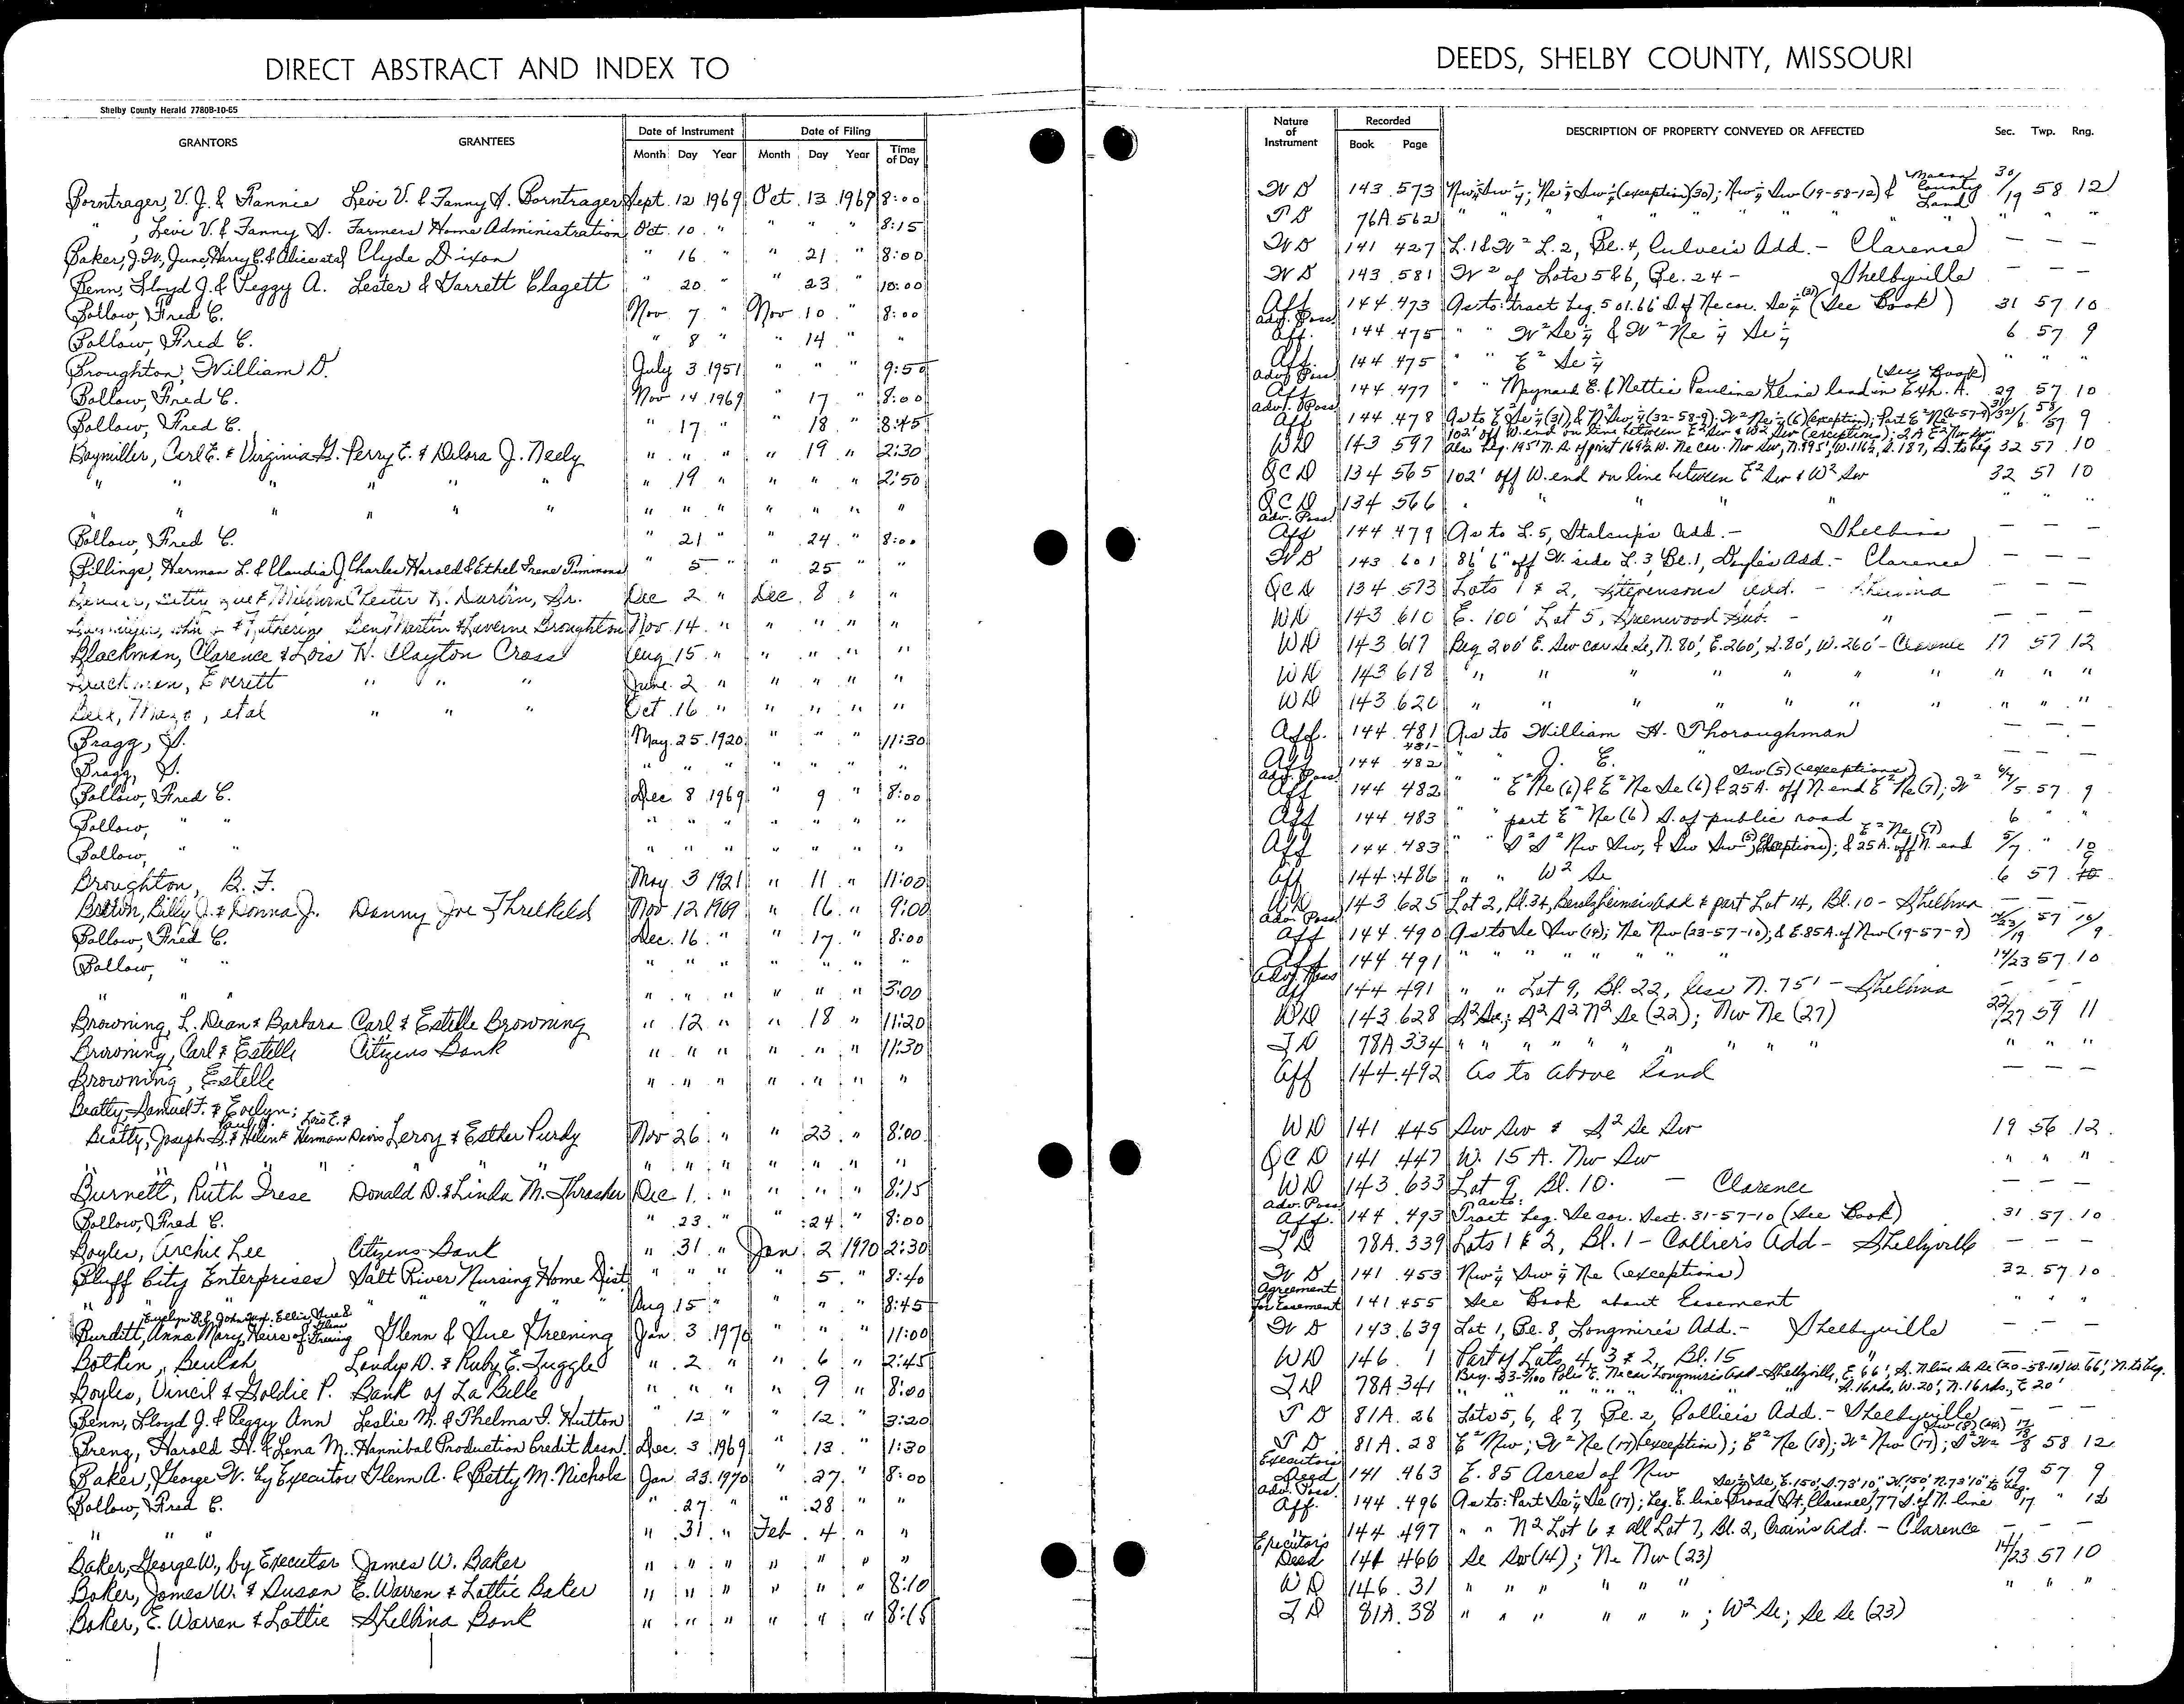 DIRECT ABSTRACT AND INDEX TO
Shelby County Herald 7780B-10-65
GRANTORS GRANTEES Date of Instrument Date of Filing
Month Day Year Month Day Year Time of Day
Borntrager, V. J. & Fannie Levi V. & Fanny A. Borntrager Sept. 12 1969 Oct. 13 1969 8:00
" , Levi V. & Fanny A. Farmers Home Administration Oct. 10 " " " " 8:15
Baker, J.W., June, Harry C. & Alice etal Clyde Dixon " 16 " " 21 " 8:00
Benn, Lloyd J. & Peggy A. Lester & Garrett Clagett " 20 " " 23 " 10:00
Bollow, Fred C. Nov. 7 " Nov. 10 " 8:00
Bollow, Fred C. " 8 " " 14 " "
Broughton, William D. July 3 1951 " " " 9:50
Bollow, Fred C. Nov 14 1969 " 17 " 8:00
Bollow, Fred C. " 17 " " 18 " 8:45
Baymiller, Carl E. & Virginia G. Perry E. & Delora J. Neely " " " " 19 " 2:30
" " " " " " " 19 " " " " 2:50
" " " " " " " " " " " " "
Bollow, Fred C. " 21 " " 24 " 8:00
Billings, Herman L. & Claudia J. Charles Harold & Ethel Irene Timmons " 5 " " 25 " "
Chester R. Durbin, Sr. Dec 2 " Dec. 8 " "
Martin & Laverne Broughton Nov. 14 " " " " "
Blackman, Clarence & Lois W. Clayton Cross Aug 15 " " " " "
Blackman, Everett " " " June 2 " " " " "
etal " " " Oct. 16 " " " " "
Bragg, S. May 25 1920 " " " 11:30
Bragg, S. " " " " " " "
Bollow, Fred C. Dec. 8 1969 " 9 " 8:00
Bollow, " " " " " " " " "
Bollow, " " " " " " " " "
Broughton, B. F. May 3 1921 " 11 " 11:00
Britton, Billy J. & Donna J. Danny Joe Threlkeld Nov 12 1969 " 16 " 9:00
Bollow, Fred C. Dec. 16 " " 17 " 8:00
Bollow, " " " " " " " " "
" " " " " " " " " 3:00
Browning, L. Dean & Barbara Carl & Estelle Browning " 12 " " 18 " 11:20
Browning, Carl & Estelle Citizens Bank " " " " " " 11:30
Browning, Estelle " " " " " " "
Beatty, Samuel F. & Evelyn;
Beatty, Joseph S. & Helen & Herman Davis Leroy & Esther Purdy Nov 26 " " 23 " 8:00
" " " " " " " " " " " " "
Burnett, Ruth Irese Donald D. & Linda M. Thrasher Dec 1 " " " " 8:15
Bollow, Fred C. " 23 " " 24 " 8:00
Boyles, Archie Lee Citizens Bank " 31 " Jan. 2 1970 2:30
Bluff City Enterprises Salt River Nursing Home Dist. " " " " 5 " 8:40
" " " " " " " Aug 15 " " " " 8:45
Burditt, Anna Mary, Heirs of Glenn & Sue Greening Jan. 3 1970 " " " 11:00
Botkin, Beulah Landys D. & Ruby E. Tuggle " 2 " " 6 " 2:45
Boyles, Vincil & Goldie P. Bank of La Belle " " " " 9 " 8:00
Benn, Lloyd J. & Peggy Ann Leslie M. & Thelma I. Hutton " 12 " " 12 " 3:20
Preng, Harold H. & Lena M. Hannibal Production Credit Assn. Dec. 3 1969 " 13 " 1:30
Baker, George W. by Executor Glenn A. & Betty M. Nichols Jan. 23 1970 " 27 " 8:00
Bollow, Fred C. " 27 " " 28 " "
" " " " 31 " Feb. 4 " "
Baker, George W., by Executor James W. Baker " " " " " " "
Baker, James W. & Susan E. Warren & Lottie Baker " " " " " " 8:10
Baker, E. Warren & Lottie Shelbina Bank " " " " " " 8:15
DEEDS, SHELBY COUNTY, MISSOURI
Nature of Instrument Recorded DESCRIPTION OF PROPERTY CONVEYED OR AFFECTED Sec. Twp. Rng.
Book Page
W D 143 573 Nw¼ Sw¼; Ne¼ Sw¼ (exception)(30); Nw¼ Sw (19-58-12) & Macon County Land 30/19 58 12
T D 76A 562 " " " " " " "
W D 141 427 L. 1 & W² L. 2, Bl. 4, Culver's Add. - Clarence — — —
W D 143 581 W² of Lots 5 & 6, Bl. 24 - Shelbyville — — —
Aff 144 473 As to: tract beg. 501.66' S. of Ne cor. Se¼ (31) (See Book) 31 57 10
Adv. Poss. Aff. 144 475 " " W² Se¼ & W² Ne¼ Se¼ 6 57 9
Aff. 144 475 " " E² Se¼ " " "
Adv. Poss. Aff 144 477 " " Maynard E. & Nettie Pauline Kline land in E4h. A. (See Book) 29 57 10
Adv. Poss. Aff 144 478 As to E² Se¼ (31), & N² Sw¼ (32-58-9); W² Ne¼ (6)(exception); Part E² Ne (6-57-9) 31/32/6 58/57 9
WD 143 597 102' off W. end on line between E² Sw & W² Sw (exception); 2A E² Nw Sw;
also beg. 195' N. S. of point 169½ W. Ne cor. Nw Sw, N. 195', W. 116½, S. 187, S. to beg 32 57 10
QCD 134 565 102' off W. end on line between E² Sw & W² Sw 32 57 10
QCD 134 566 " " " " " " "
Adv. Poss. Aff 144 479 As to L. 5, Stalcup's Add. - Shelbina — — —
WD 143 601 86' 6" off W. side L. 3, Bl. 1, Doyle's Add. - Clarence — — —
QCD 134 573 Lots 1 & 2, Stevensons Add. - Shelbina — — —
WD 143 610 E. 100' Lot 5, Greenwood Sub. - " — — —
WD 143 617 Beg 200' E. Sw cor Se Se, N. 80', E. 260', S. 80', W. 260' - Clarence 17 57 12
WD 143 618 " " " " " " " " " "
WD 143 620 " " " " " " " " " "
Aff. 144 481 As to William H. Thoroughman — — —
Aff 144 481-482 " " J. E. " — — —
Adv. Poss. Aff 144 482 " " E² Ne (6) & E² Ne Se (6) & 25A. off N. end E² Ne (7); W² Sw (5) (exceptions) 6/7/5 57 9
Aff 144 483 " " part E² Ne (6) S. of public road 6 " "
Aff 144 483 " " S² S² Nw Sw, & Sw Sw (5) (exceptions); & 25A. off N. end E² Ne (7) 5/7 " 10
Aff 144 486 " " W² Se 6 57 9
WD 143 625 Lot 2, Bl. 34, Benzlheimer's Add & part Lot 14, Bl. 10 - Shelbina — — —
Adv. Poss. Aff 144 490 As to Se Sw (14); Ne Nw (23-57-10); & E. 85A. of Nw (19-57-9) 14/23/19 57 10/9
Aff 144 491 " " " " " " " 14/23 57 10
Adv. Poss. Aff 144 491 " " Lot 9, Bl. 22, less N. 75' - Shelbina — — —
WD 143 628 S² Se; S² S² N² Se (22); Nw Ne (27) 22/27 59 11
TD 78A 334 " " " " " " " " " " " "
Aff 144 492 As to above Land — — —
WD 141 445 Sw Sw & S² Se Sw 19 56 12
QCD 141 447 W. 15 A. Nw Sw " " "
WD 143 633 Lot 9, Bl. 10. - Clarence — — —
Adv. Poss. Aff. 144 493 as to: Tract beg. Se cor. Sect. 31-57-10 (See Book) 31 57 10
TD 78A 339 Lots 1 & 2, Bl. 1 - Collier's Add - Shelbyville — — —
WD 141 453 Nw¼ Sw¼ Ne (exceptions) 32 57 10
Agreement for Easement 141 455 See Book about Easement " " "
WD 143 639 Lot 1, Bl. 8, Longmire's Add. - Shelbyville — — —
WD 146 1 Part of Lots 4, 3 & 2, Bl. 15 " — — —
TD 78A 341 Beg. Longmire's Add - Shelbyville, E. 66', S. N. line Se Se (20-58-10) W. 66', N. to beg.
S. 16 rds, W. 20', N. 16 rds., E 20'
T D 81A 26 Lots 5, 6, & 7, Bl. 2, Collier's Add. - Shelbyville — — —
T D 81A 28 E² Nw; W² Ne (17)(exception); E² Ne (18); W² Nw (17); 58 12
Executors Deed 141 463 E. 85 Acres of Nw 19 57 9
Adv. Poss. Aff. 144 496 As to: Part Se¼ Se (17); beg. E. line Broad St, Clarence, 77' S. of N. line Se¼ Se, E. 150', S. 73'10", W. 150', N. 73'10" to beg. 17 " 12
144 497 " " N² Lot 6 & all Lot 7, Bl. 2, Crain's Add. - Clarence — — —
Executor's Deed 141 466 Se Sw (14); Ne Nw (23) 14/23 57 10
WD 146 31 " " " " " " " " "
TD 81A 38 " " " " " " ; W² Se; Se Se (23)